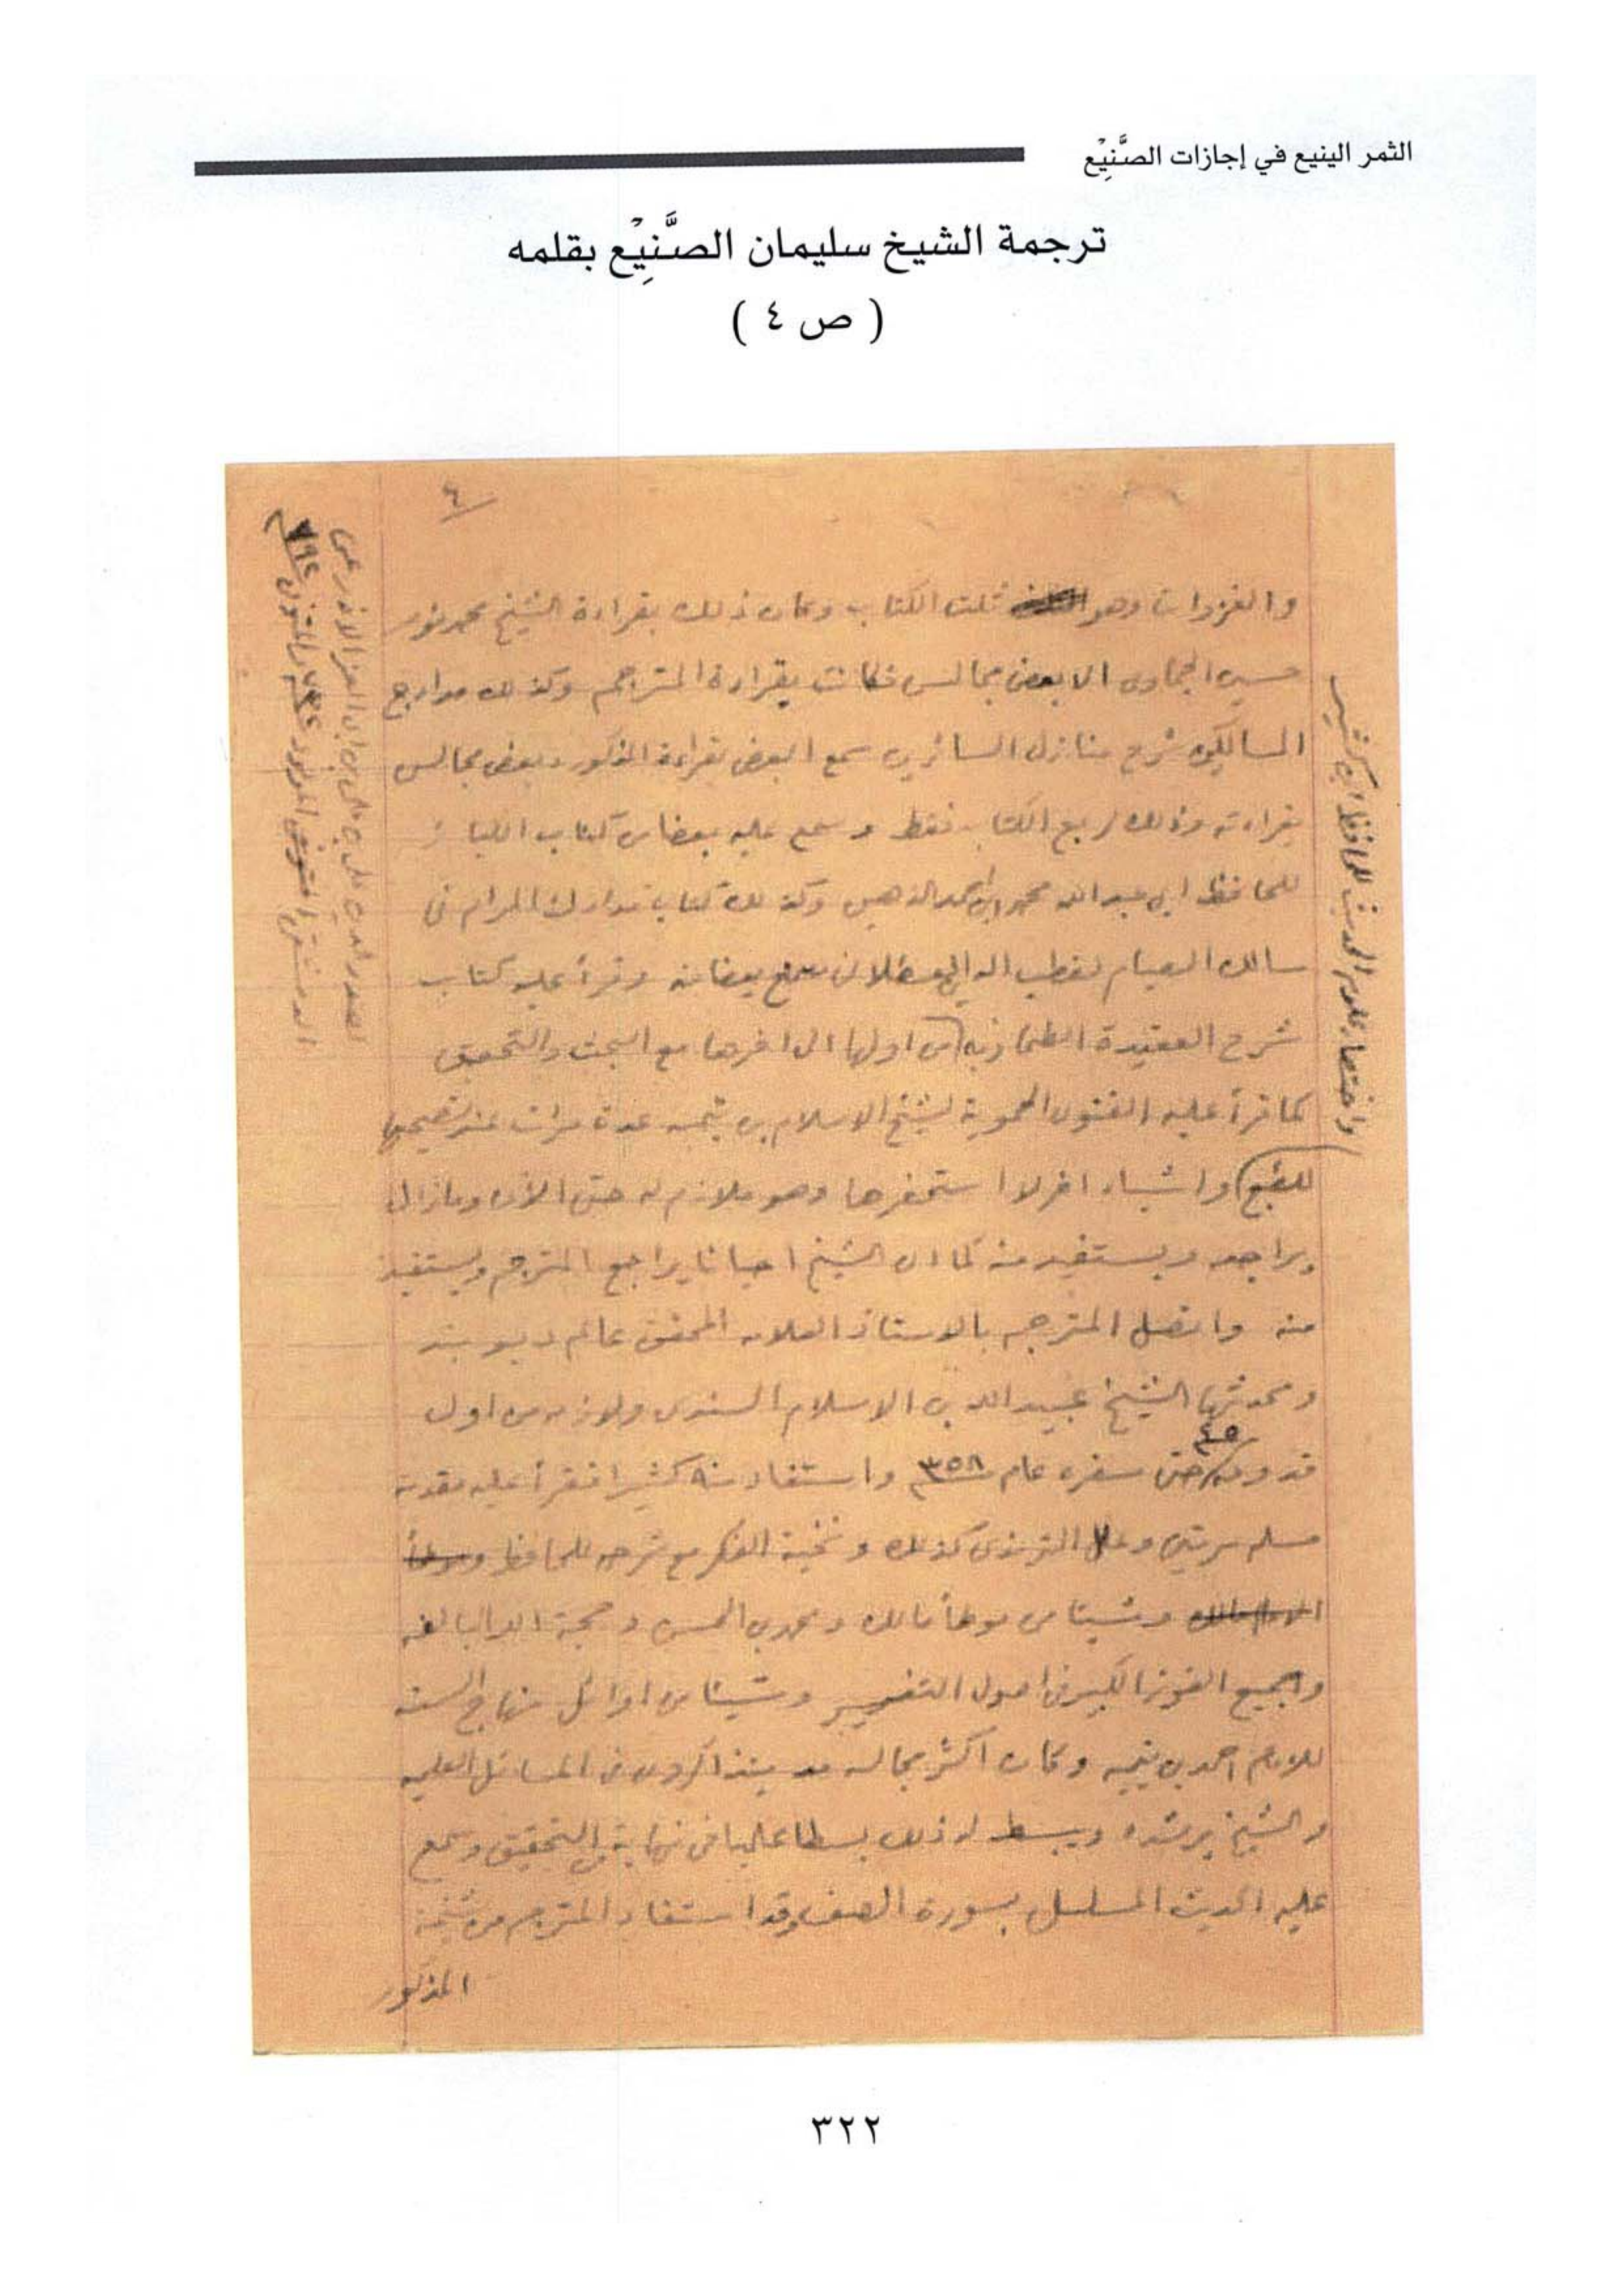 الثمر الينيع في إجازات الصَّنِيْع
ترجمة الشيخ سليمان الصَّنِيْع بقلمه
( ص ٤ )
٤
والغزوات وهو ثلث الكتاب وكان ذلك بقراءة الشيخ محمد نور
حسين الجماوى الا بعض مجالس فكانت بقراءة المترجم وكذلك مدارج
السالكين شرح منازل السائرين سمع البعض بقراءة المذكور وبعض مجالس
بقراءته وذلك ربع الكتاب فقط وسمع عليه بعضا من كتاب الكبائر
للحافظ ابى عبد الله محمد بن احمد الذهبى وكذلك كتاب مدارك المرام فى
مسالك الصيام لقطب الدين القسطلانى سمع بعضا منه وقرأ عليه كتاب
شرح العقيدة الطحاوية من اولها الى اخرها مع البحث والتحقيق
كما قرأ عليه الفتوى الحموية لشيخ الاسلام بن تيميه عدة مرات عند تصحيحها
للطبع واشياء اخر لا استحضرها وهو ملازم له حتى الآن وما زال
يراجعه ويستفيد منه كما ان الشيخ احيانا يراجع المترجم ويستفيد
منه واتصل المترجم بالاستاذ العلامه المحقق عالم ديوبند
ومحدثها الشيخ عبيد الله بن الاسلام السندى ولازمه من اول
قدومه ٤٥ حتى سفره عام ٣٥٨ واستفاد منه كثيرا فقرأ عليه مقدمة
مسلم مرتين وعلل الترمذى كذلك ونخبة الفكر مع شرحه للحافظ
وشيئا من موطأ مالك ومحمد بن الحسن وحجة الله البالغه
وجميع الفوز الكبير فى اصول التفسير وشيئا من اوائل منهاج السنه
للامام احمد بن تيميه وكان اكثر مجالسه يتذاكرون فى المسائل العلميه
والشيخ يرشده ويبسط له ذلك بسطا علميا فى نهاية التحقيق وسمع
عليه الحديث المسلسل بسورة الصف وقد استفاد المترجم من شيخه
المذكور
واختصار علوم الحديث للحافظ ابن كثير
لصدر الدين على بن على بن ابى العز الاذرعى
الدمشقى المولود المتوفى ٧٩٢
٣٢٢